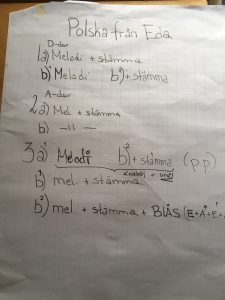 Polska från Eda
D-dur
1a) Melodi + stämma
b)¹ Melodi b)² + stämma
A-dur
2a) Mel. + stämma
b) -ıı-
3a)¹ Melodi b)² + stämma (pp)
b)¹ mel. + stämma
b)² mel. + stämma + BLÅS (E+A+E+